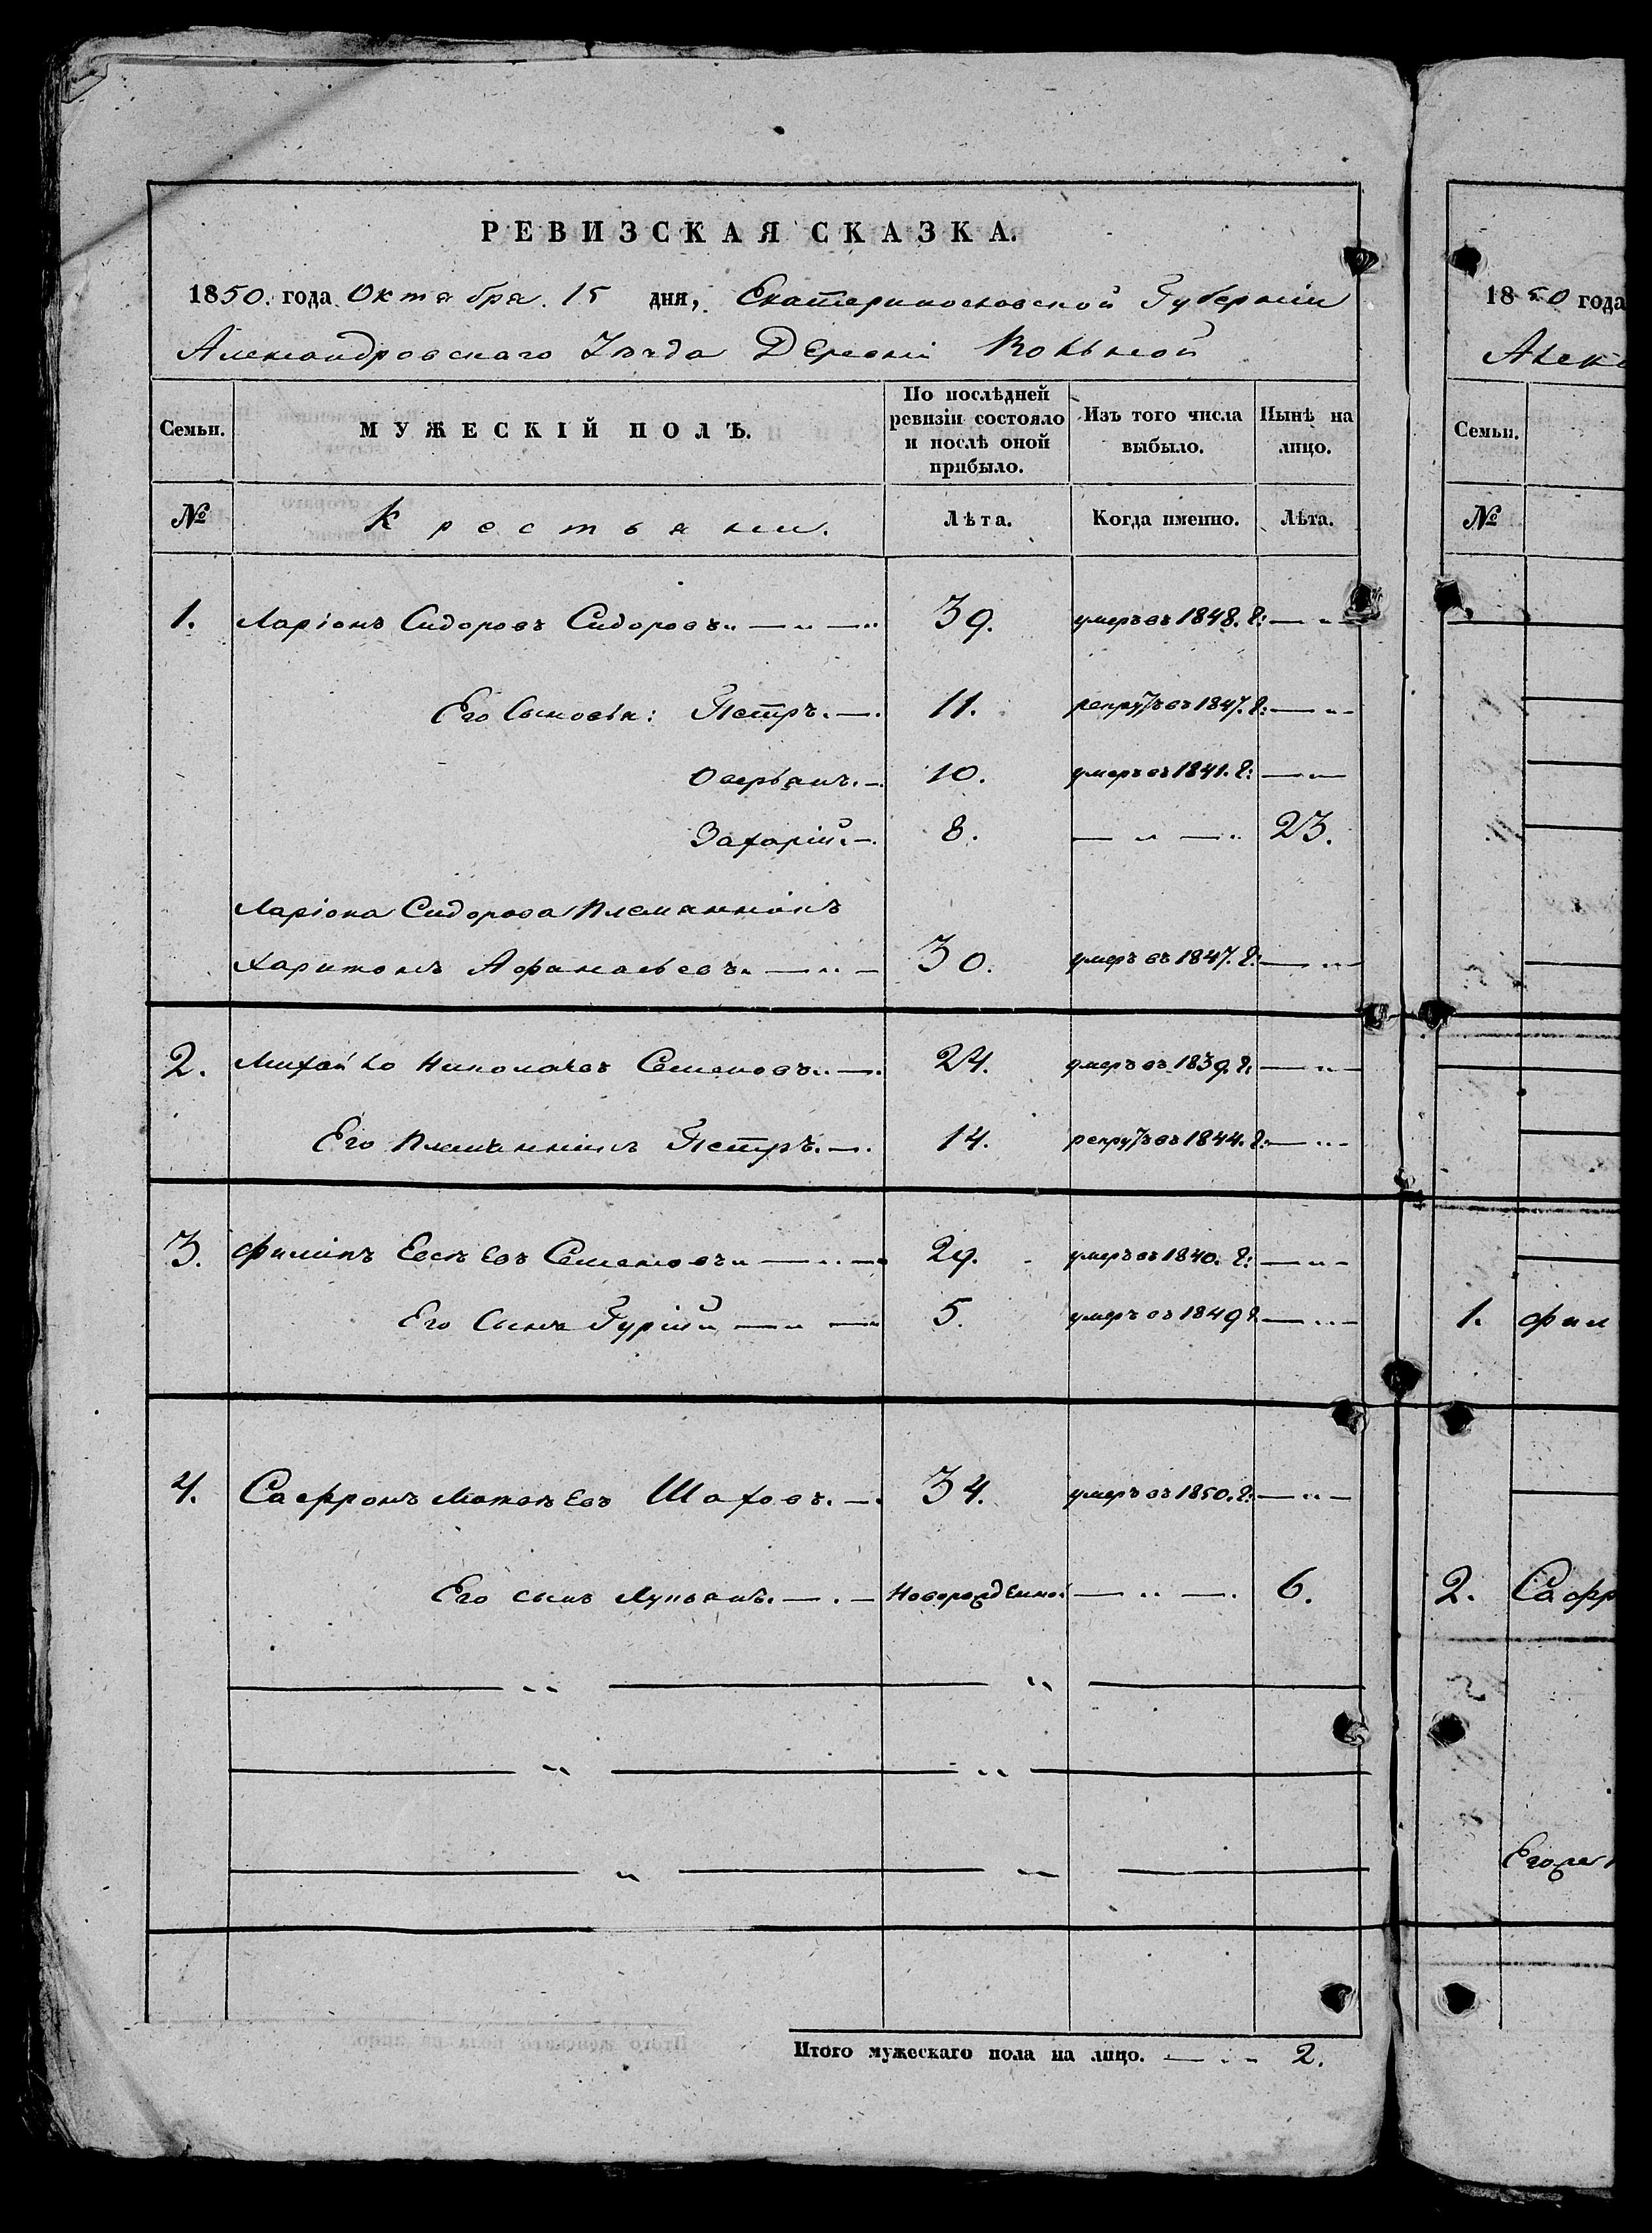 РЕВИЗСКАЯ СКАЗКА.
1850. года Октября 15 дня, Екатеринославской Губерніи
Александровскаго Уѣзда Деревни Вольной
Семьи.
МУЖЕСКІЙ ПОЛЪ.
По послѣдней ревизіи состояло и послѣ оной прибыло.
Изъ того числа выбыло.
Нынѣ на лицо.
№ Крестьяни. Лѣта. Когда именно. Лѣта.
1. Ларіонъ Сидоровъ Сидоровъ 39. умеръ въ 1848. г:
Его Сыновья: Петръ. 11. рекрутъ въ 1847. г:
Оверьянъ. 10. умеръ въ 1841. г:
Захарій. 8. 23.
Ларіона Сидорова племянникъ
Харитонъ Афанасьевъ 30. умеръ въ 1847. г:
2. Михайло Николаевъ Семеновъ 24. умеръ въ 1839. г:
Его племянникъ Петръ. 14. рекрутъ въ 1844. г:
3. Филипъ Евсѣевъ Семеновъ 29. умеръ въ 1840. г:
Его Сынъ Гурій 5. умеръ въ 1849 г.
4. Саффронъ Матвѣевъ Шаховъ. 34. умеръ въ 1850. г:
Его сынъ Лукьянъ. Новорожденной 6.
Итого мужескаго пола на лицо. 2.
1850 года
Алек
Семьи.
№
1. Фил
2. Сафф